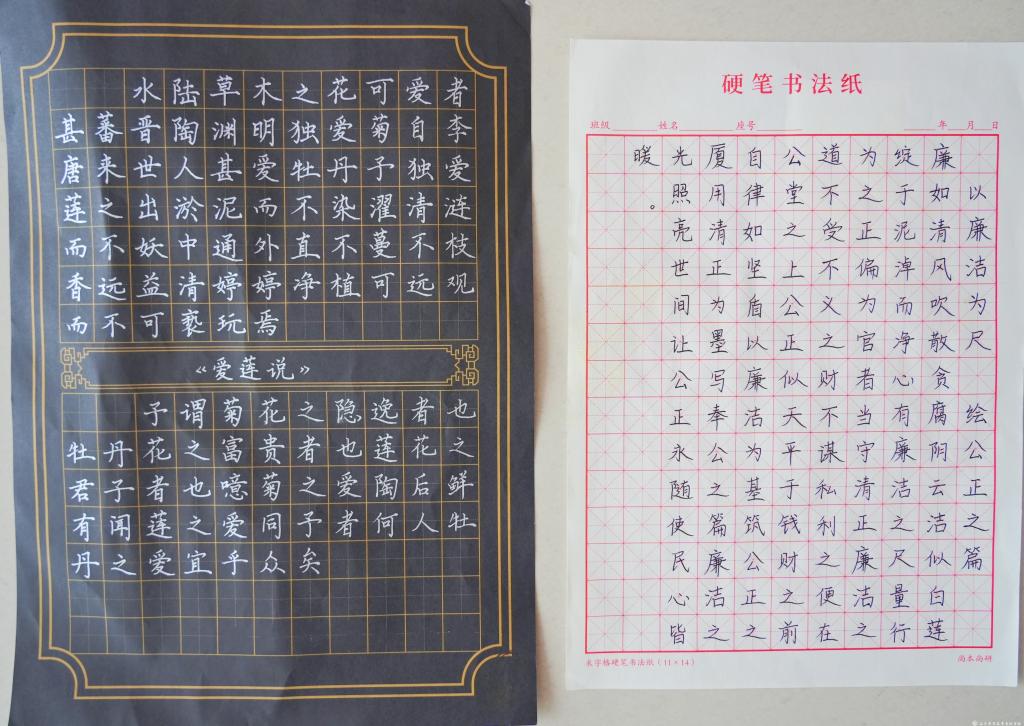 水陆草木之花可爱者
甚蕃晋陶渊明独爱菊自李
唐来世人甚爱牡丹予独爱
莲之出淤泥而不染濯清涟
而不妖中通外直不蔓不枝
香远益清婷婷净植可远观
而不可亵玩焉
《爱莲说》
子谓菊花之隐逸者也
牡丹花之富贵者也莲花之
君子者也噫菊之爱陶后鲜
有闻莲之爱同予者何人牡
丹之爱宜乎众矣
硬笔书法纸
班级 姓名 座号 年 月 日
以廉洁为尺 绘公正之篇
廉如清风吹散贪腐阴云洁似白莲
绽于泥淖而净心有廉洁之尺量行
为之正偏为官者当守清正廉洁之
道不受不义之财不谋私利之便在
公堂之上公正似天平于钱财之前
自律如坚盾以廉洁为基筑公正之
厦用清正为墨写奉公之篇廉洁之
光照亮世间让公正永随使民心皆
暖。
米字格硬笔书法纸(11×14)
尚本尚研